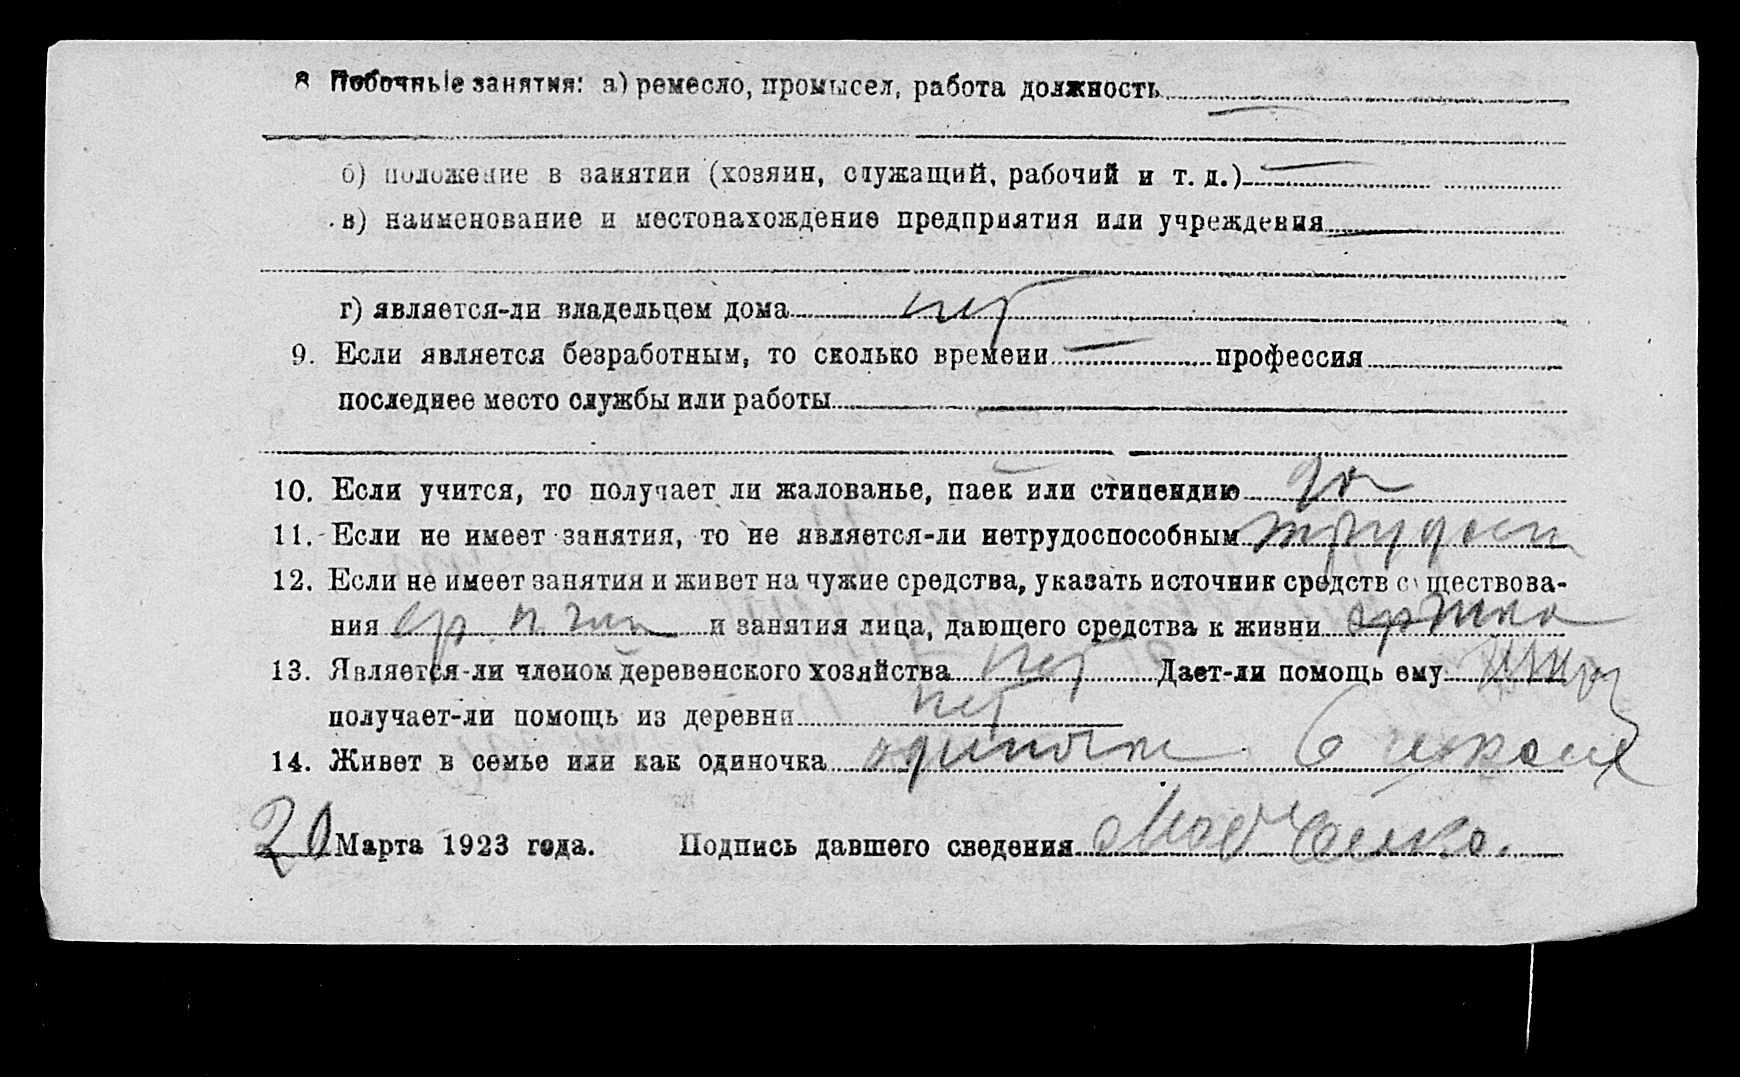 8 Побочные занятия: а) ремесло, промысел, работа должность —
б) положение в занятии (хозяин, служащий, рабочий и т. д.) —
в) наименование и местонахождение предприятия или учреждения —
г) является-ли владельцем дома нет
9. Если является безработным, то сколько времени — профессия
последнее место службы или работы
10. Если учится, то получает ли жалованье, паек или стипендию да
11. Если не имеет занятия, то не является-ли нетрудоспособным трудосп
12. Если не имеет занятия и живет на чужие средства, указать источник средств существова-
ния и занятия лица, дающего средства к жизни
13. Является-ли членом деревенского хозяйства нет Дает-ли помощь ему
получает-ли помощь из деревни нет
14. Живет в семье или как одиночка одиночка
20 Марта 1923 года. Подпись давшего сведения